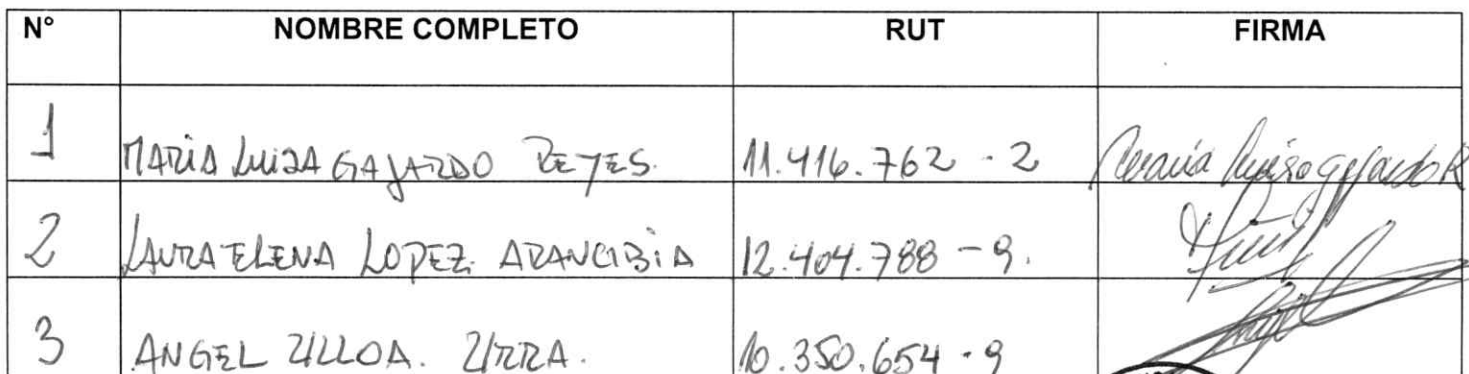 N° NOMBRE COMPLETO RUT FIRMA
1 MARIA LUISA GAJARDO REYES. 11.416.762 - 2 Maria Luisa Gajardo R
2 LAURA ELENA LOPEZ. ARANCIBIA 12.404.788 - 9.
3 ANGEL ULLOA. URRA. 10.350.654 - 9